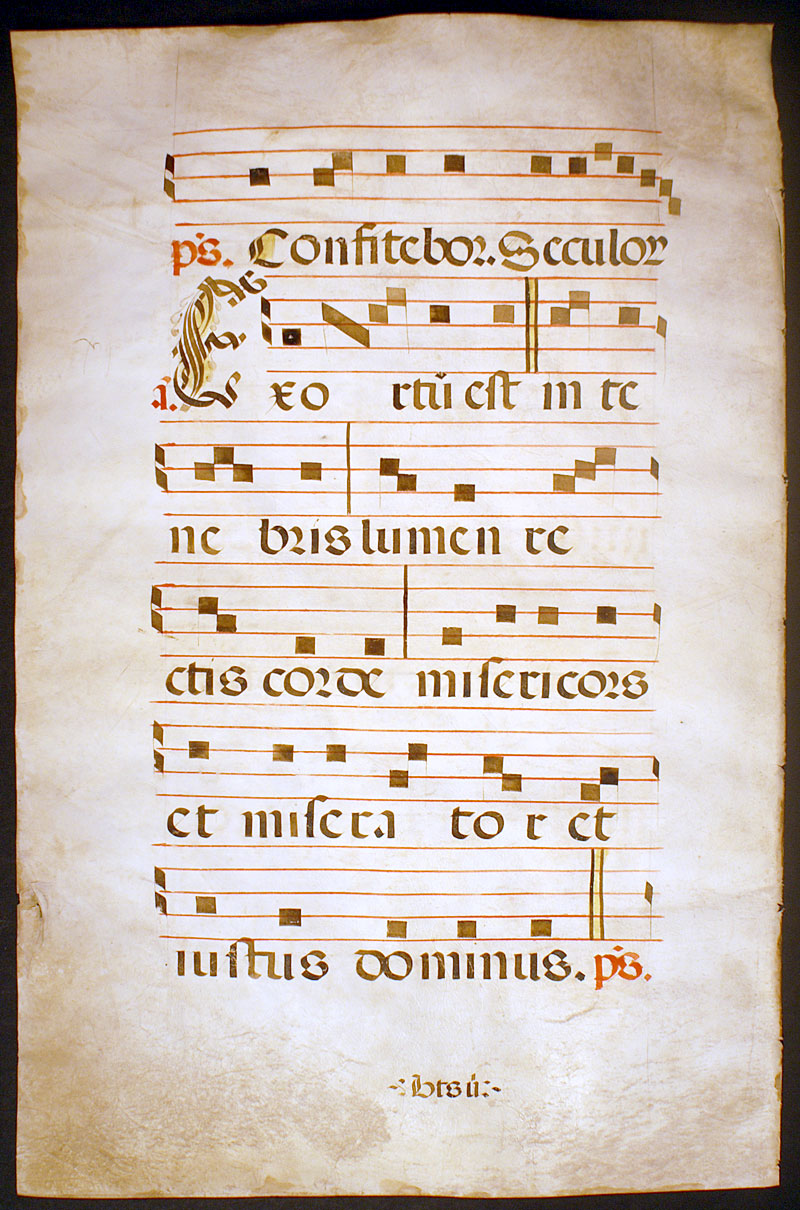 ps. Confitebor. Seculor
a. Exo rtū est in te
ne bris lumen re
ctis corde misericors
et misera to r et
iustus dominus. ps.